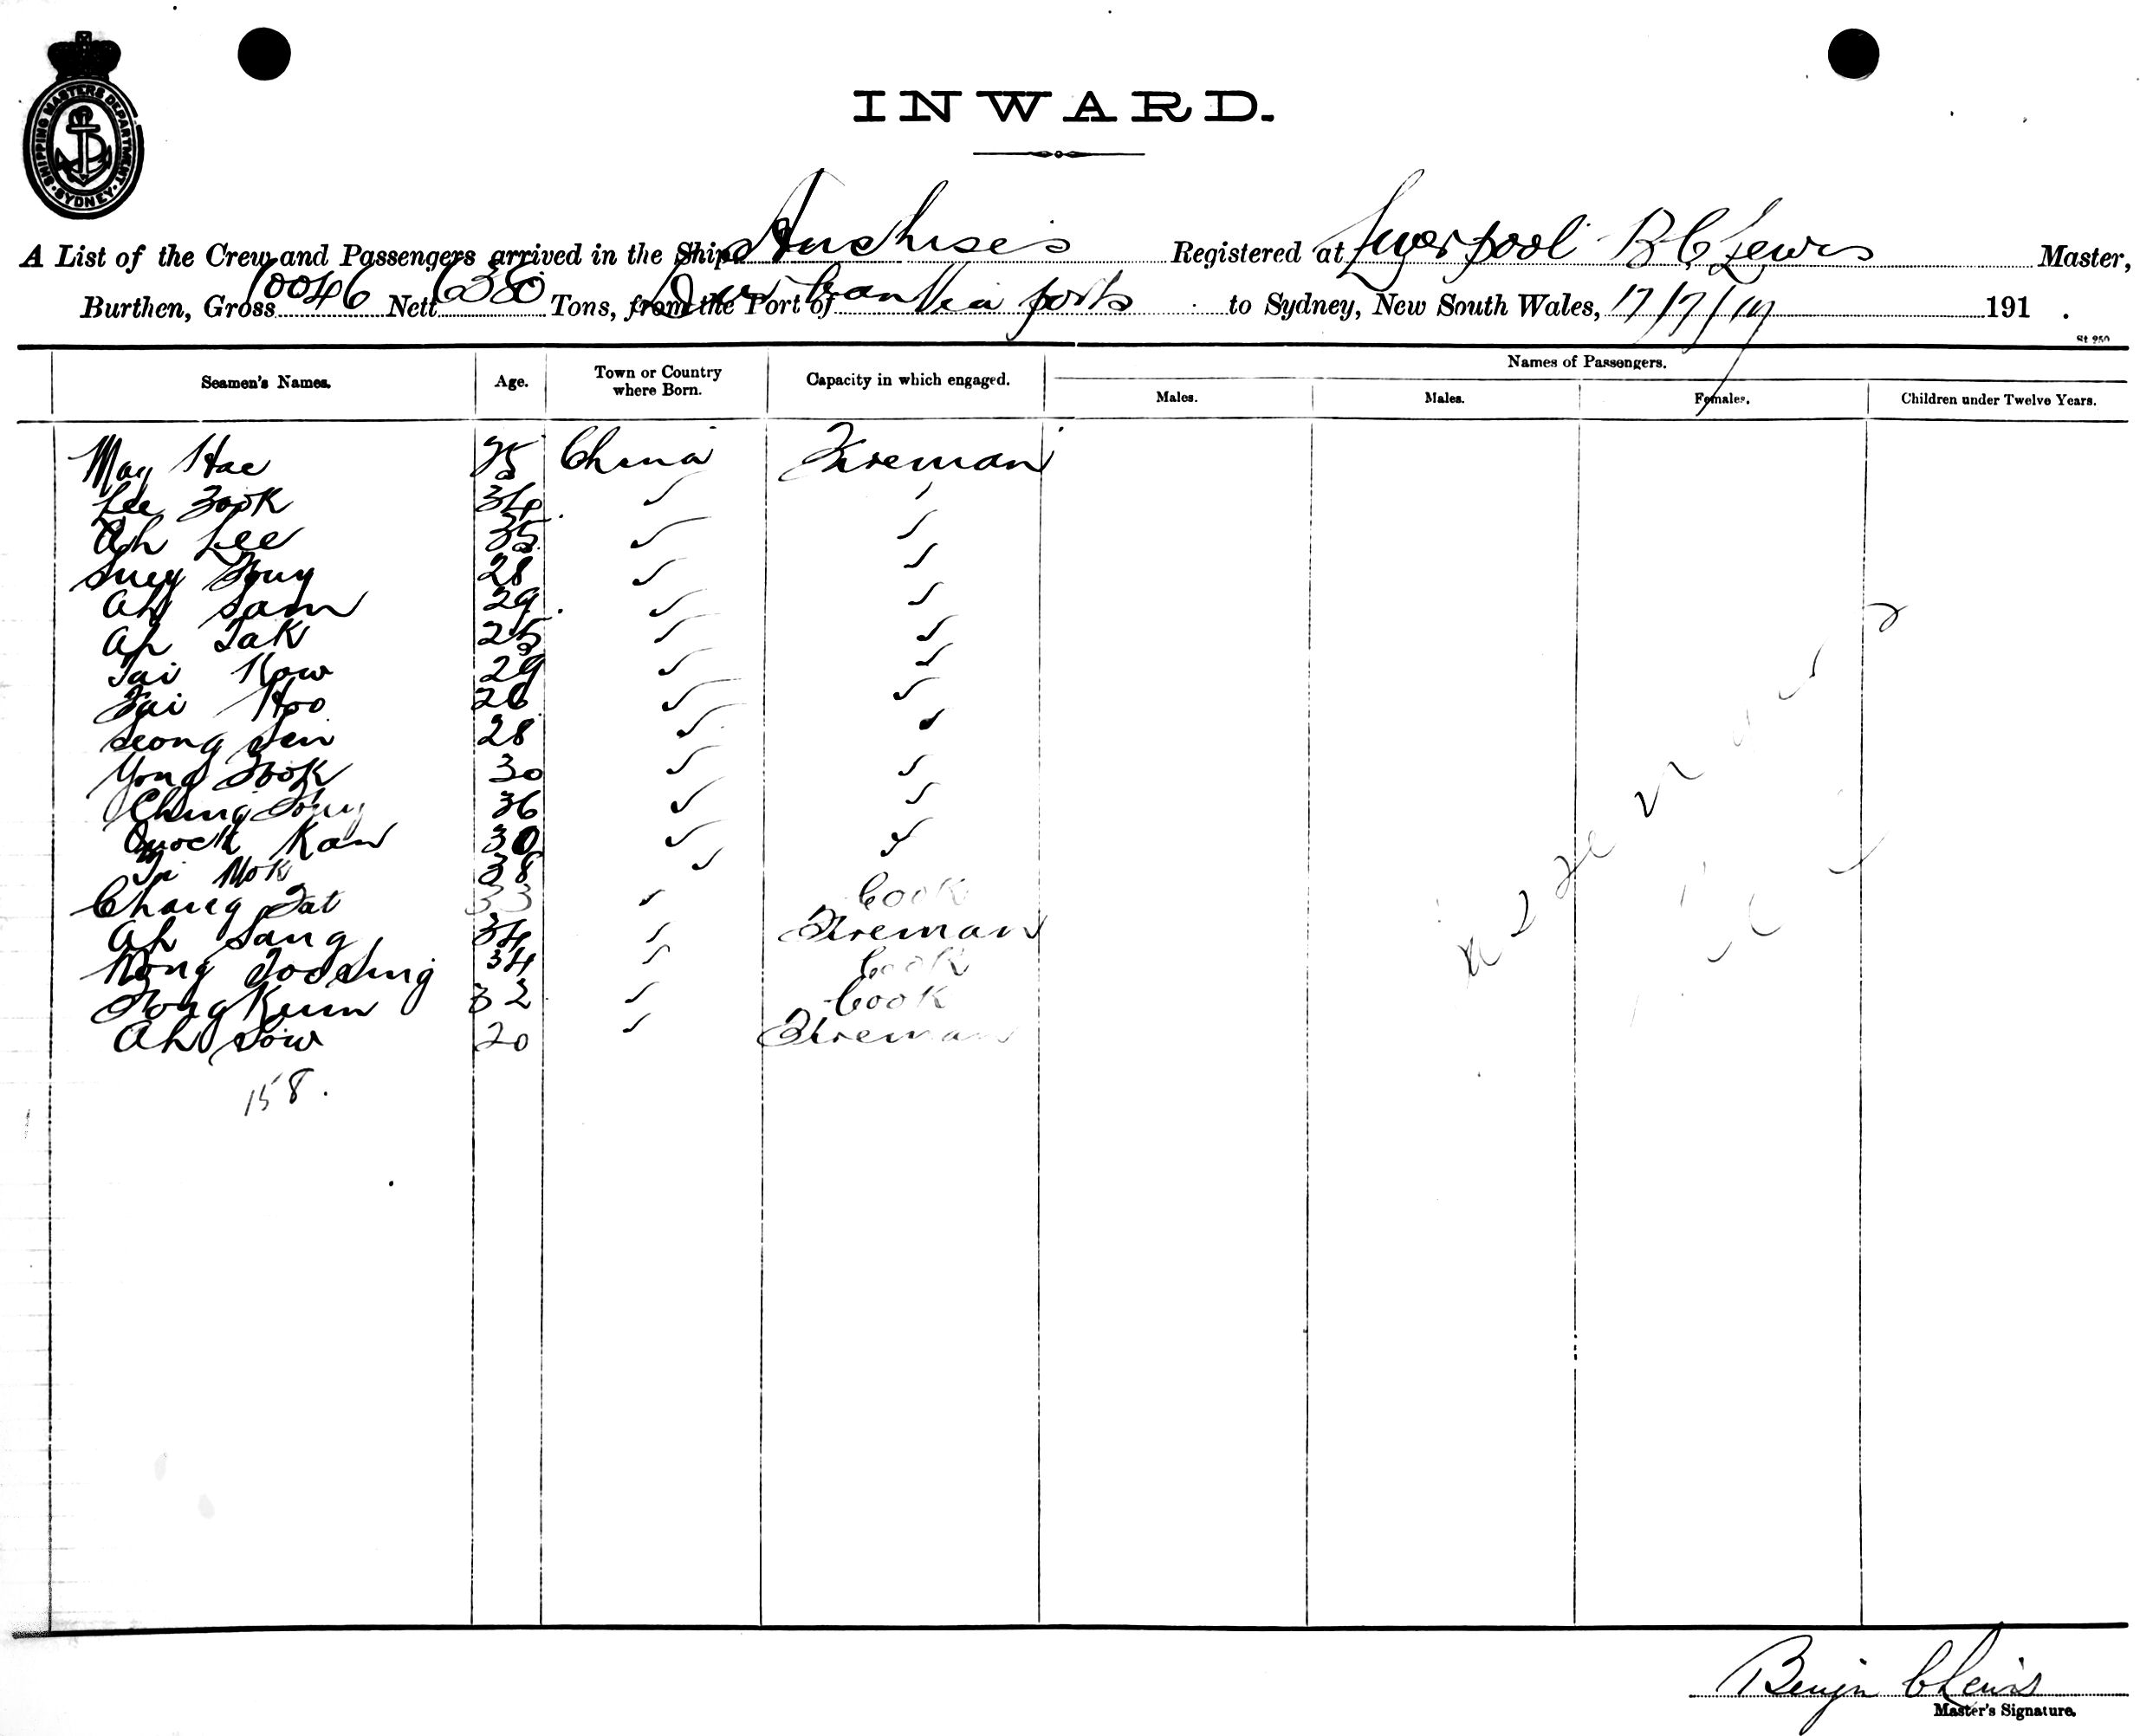 SHIPPING MASTERS DEPARTMENT · SYDNEY
INWARD.
A List of the Crew and Passengers arrived in the Ship Anchises Registered at Liverpool B C Lewis Master,
Burthen, Gross 10046 Nett Tons, from the Port of via ports to Sydney, New South Wales, 17/7/19 191 .
St 250
Seamen's Names. Age. Town or Country where Born. Capacity in which engaged. Names of Passengers.
Males. Males. Females. Children under Twelve Years.
May Hae 25 China Fireman
Lee Fook 34 ✓ ✓
Ah Lee 35 ✓ ✓
Suey Fong 28 ✓ ✓
Ah Sam 29 ✓ ✓
Ah Tak 25 ✓ ✓
Tai Kow 29 ✓ ✓
Fai Hoo 26 ✓ ✓
Leong Sen 28 ✓ ✓
Yong Fook 30 ✓ ✓
Ching Fong 36 ✓ ✓
Quock Kan 30 ✓ ✓
Mok 38 ✓
Chang Fat 33 ✓ Cook
Ah Sang 34 ✓ Fireman
34 ✓ Cook
Fong Kum 32 ✓ Cook
Ah Sow 20 ✓ Fireman
158.
Benjn C Lewis
Master's Signature.